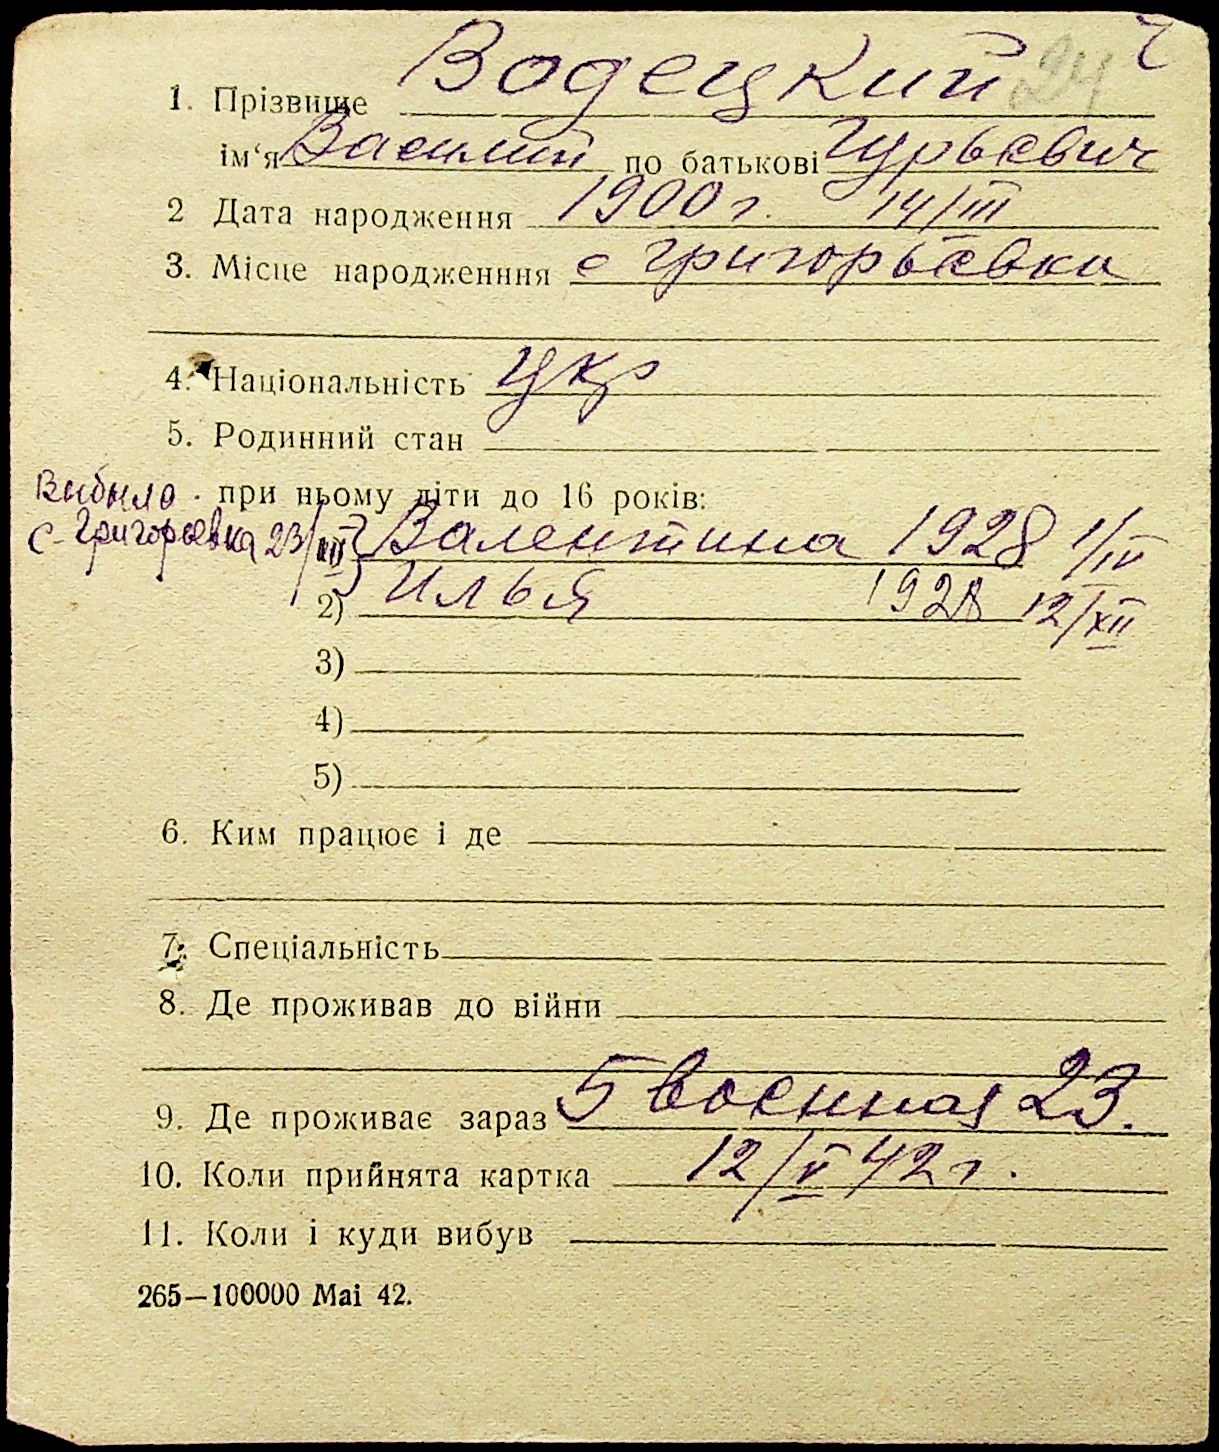 24
1. Прізвище Водецкий
ім'я Василий по батькові Гурьевич
2 Дата народження 1900 г. 14/III
3. Місце народженння с Григорьевка
4. Національність Укр
5. Родинний стан
Выбыла . при ньому діти до 16 років:
с. Григорьевка 23/ Валентина 1928 1/IV
2) Илья 1928 12/XII
3)
4)
5)
6. Ким працює і де
7. Спеціальність
8. Де проживав до війни
9. Де проживає зараз 5 военная 23.
10. Коли прийнята картка 12/V 42 г.
11. Коли і куди вибув
265—100000 Mai 42.